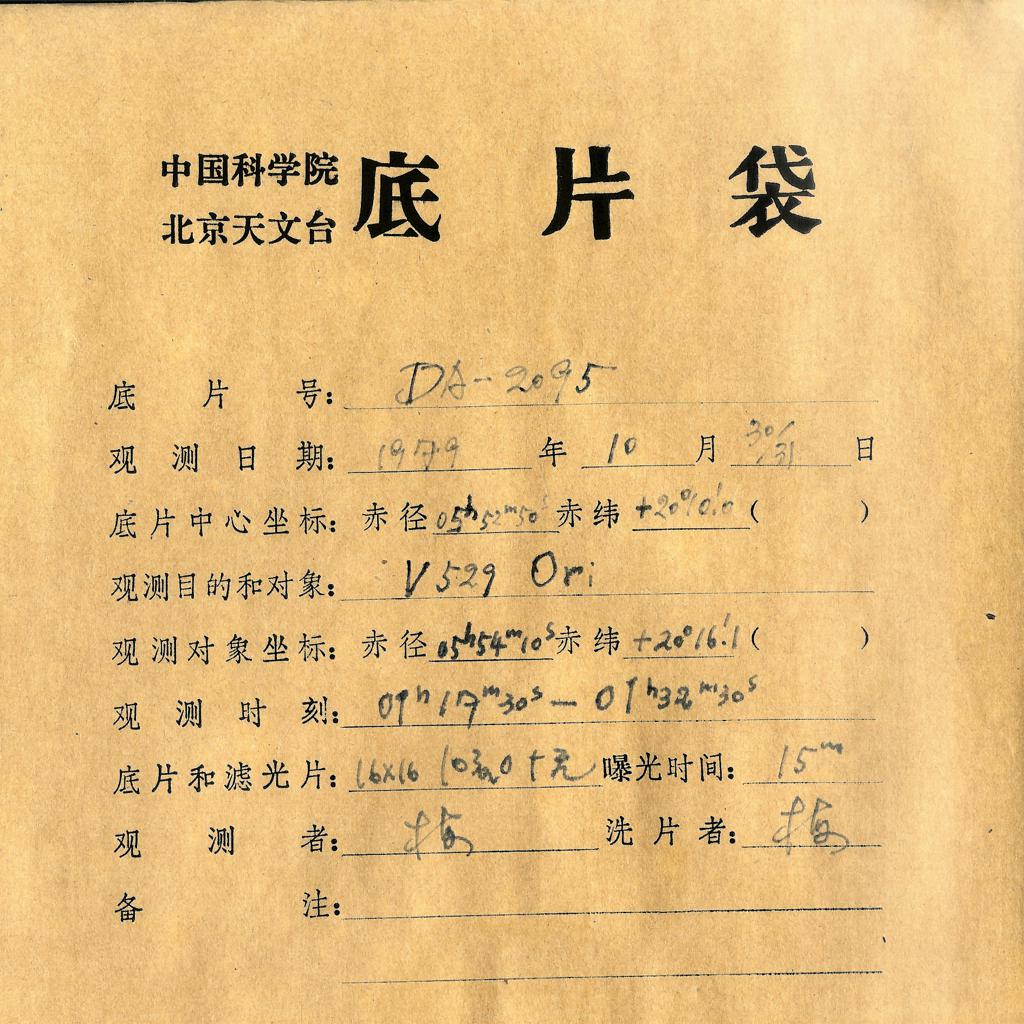 中国科学院
北京天文台
底片袋
底片号：DA-2095
观测日期：1979年10月30/31日
底片中心坐标：赤径05h52m50s赤纬+20°10′.0（ ）
观测目的和对象：V529 Ori
观测对象坐标：赤径05h54m10s赤纬+20°16′.1（ ）
观测时刻：01h17m30s — 01h32m30s
底片和滤光片：16×16 +无 曝光时间：15m
观测者：梅 洗片者：梅
备注：